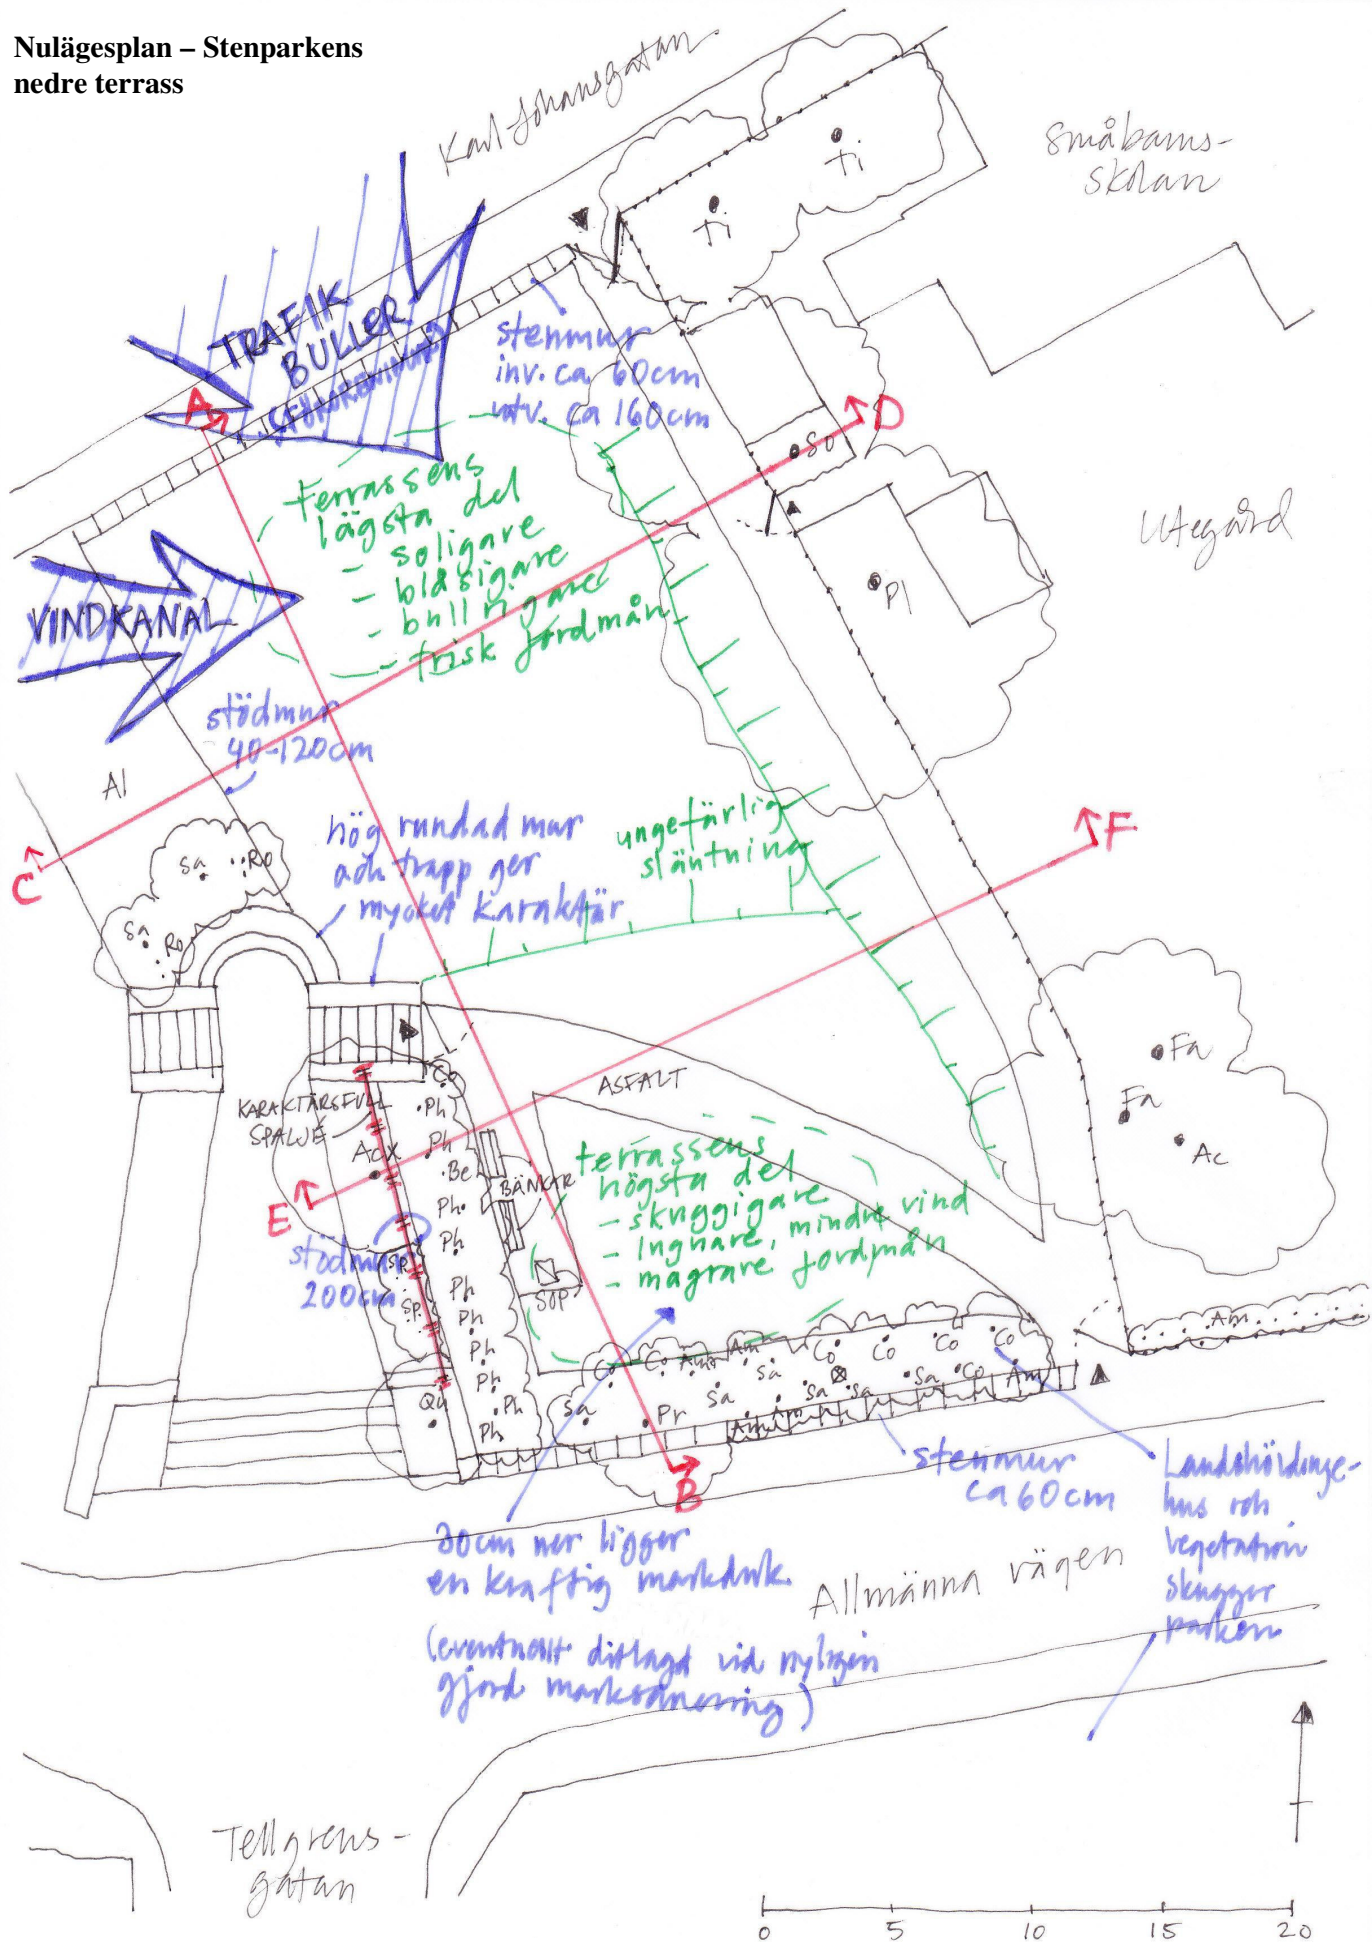 Nulägesplan – Stenparkens
nedre terrass
Karl Johansgatan
Småbarns-
skolan
Ti
Ti
TRAFIK
BULLER
(FÖRORENING)
stenmur
inv. ca 60cm
utv. ca 160cm
A
D
So
terrassens
lägsta del
- soligare
- blåsigare
- bullrigare
- frisk jordmån
Utegård
Pl
VINDKANAL
stödmur
40-120cm
Al
C
hög rundad mur
och trapp ger
mycket karaktär
ungefärlig
släntning
F
Sa
Ro
Sa
Ro
Fa
Fa
Ac
ASFALT
KARAKTÄRSFULL
SPALJÉ
AcX
Co
Ph
Ph
Be
Ph
Ph
BÄNKAR
E
terrassens
högsta del
- skuggigare
- lugnare, mindre vind
- magrare jordmån
stödmur
200cm
Sp
Sp
SOP
Ph
Ph
Ph
Ph
Ph
Ph
Qu
Am
Co
Co
Am
Am
Sa
Co
Co
Co
Co
Sa
Sa
Sa
Sa
Co
Am
Sa
Pr
Am
B
stenmur
ca 60cm
Landshövdinge-
hus och
vegetation
skuggar
parken
30cm ner ligger
en kraftig markduk.
(eventuellt ditlagd vid nyligen
gjord marksanering)
Allmänna vägen
Tellgrens-
gatan
0 5 10 15 20